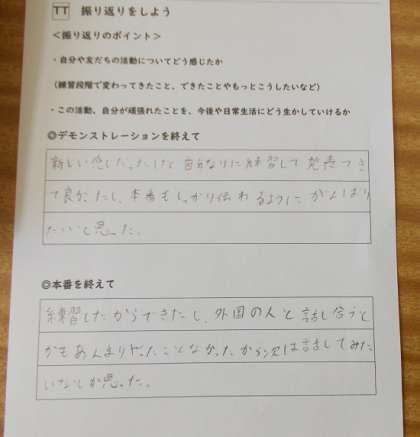 TT 振り返りをしよう
＜振り返りのポイント＞
・自分や友だちの活動についてどう感じたか
（練習段階で変わってきたこと、できたことやもっとこうしたいなど）
・この活動、自分が頑張れたことを、今後や日常生活にどう生かしていけるか
◎デモンストレーションを終えて
難しい感じだったけど自分なりに練習して発表でき
て良かったし、本番もしっかり伝わるようにがんばり
たいと思った。
◎本番を終えて
練習したからできたし、外国の人と話し合うと
かもあんまりやったことなかったから次は話してみた
いなとか思った。